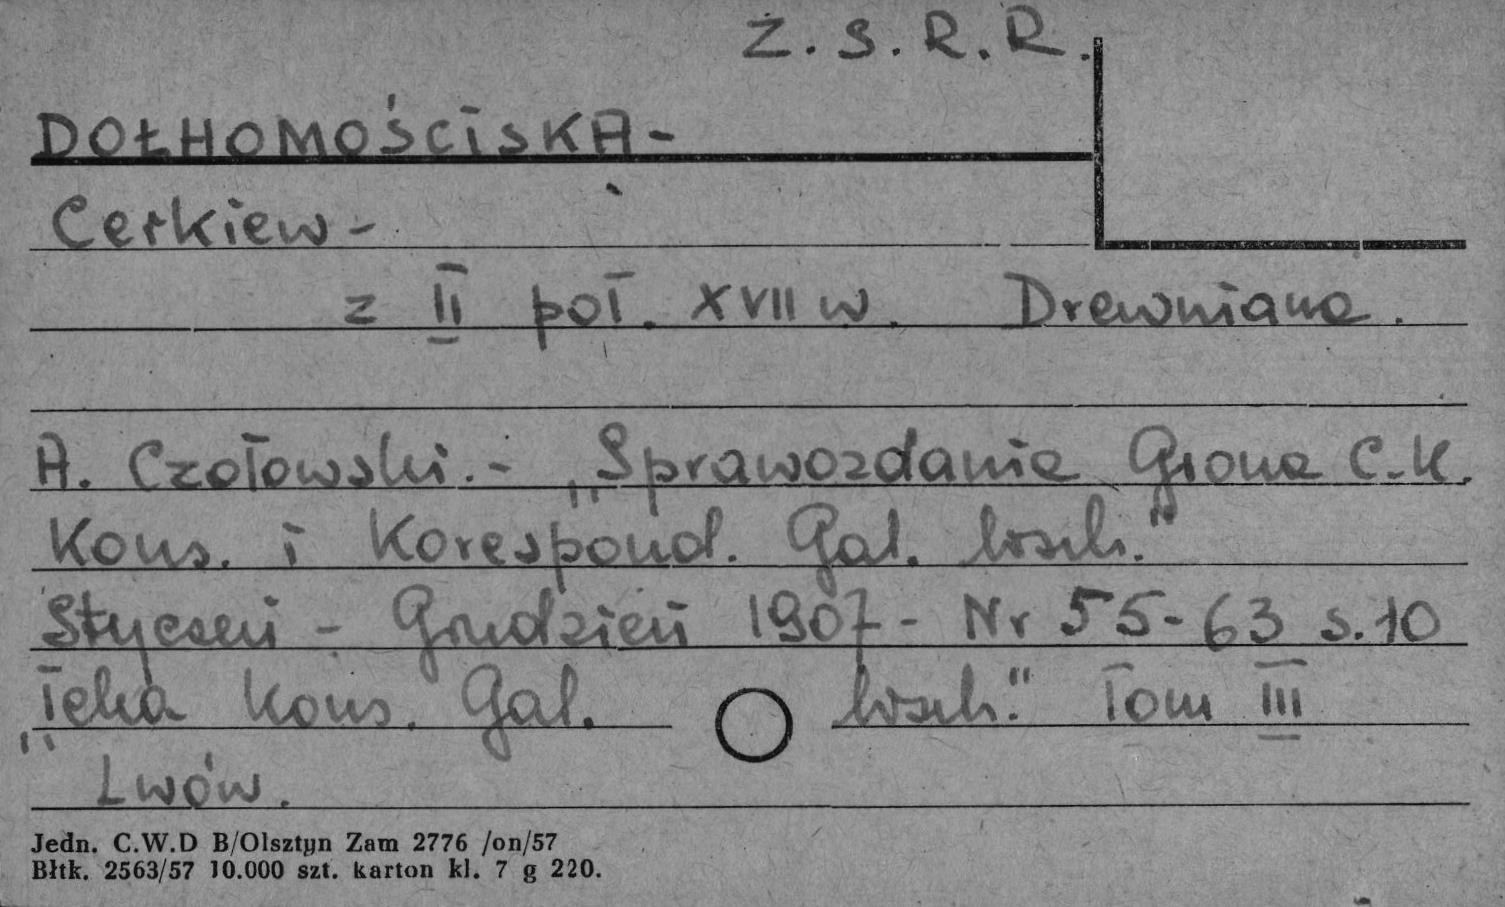 Z.S.R.R.
DOŁHOMOŚCISKA-
Cerkiew-
z II poł. XVII w. Drewniana.
A. Czołowski.- „Sprawozdanie Grona C.K.
Kons. i Korespond. Gal. wsch."
Styczeń - Grudzień 1907- Nr 55-63 s.10
„Teka Kons. Gal. wsch." Tom III
Lwów.
Jedn. C.W.D B/Olsztyn Zam 2776 /on/57
Błtk. 2563/57 10.000 szt. karton kl. 7 g 220.